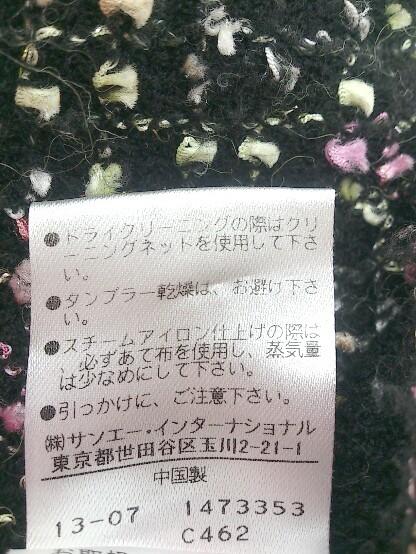 ●ドライクリーニングの際はクリ
ーニングネットを使用して下さ
い。
●タンブラー乾燥は、お避け下さ
い。
●スチームアイロン仕上げの際は
必ずあて布を使用し、蒸気量
は少なめにして下さい。
●引っかけに、ご注意下さい。
㈱サンエー・インターナショナル
東京都世田谷区玉川2-21-1
中国製
13-07 1473353
C462